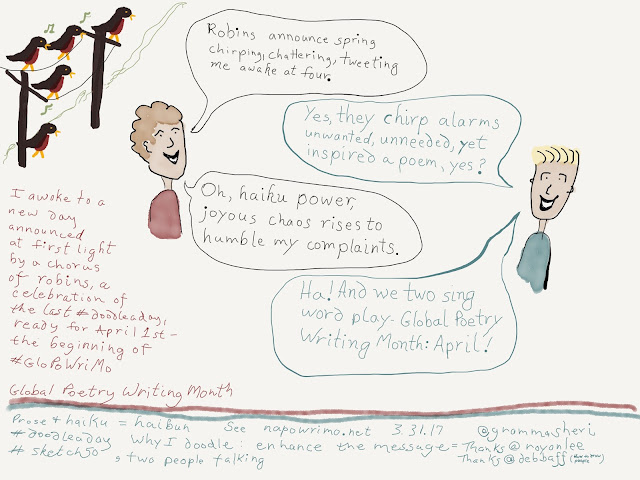 Robins announce spring
chirping, chattering, tweeting
me awake at four.
Yes, they chirp alarms
unwanted, unneeded, yet
inspired a poem, yes?
Oh, haiku power,
joyous chaos rises to
humble my complaints.
Ha! And we two sing
word play - Global Poetry
Writing Month: April!
I awoke to a
new day
announced
at first light
by a chorus
of robins, a
celebration of
the last #doodleaday,
ready for April 1st-
the beginning of
#GloPoWriMo
Global Poetry Writing Month
Prose + haiku = haibun See napowrimo.net 3.31.17 @grammasheri
#doodleaday Why I doodle: enhance the message = Thanks @royanlee
#sketch50, two people talking Thanks @debbaff